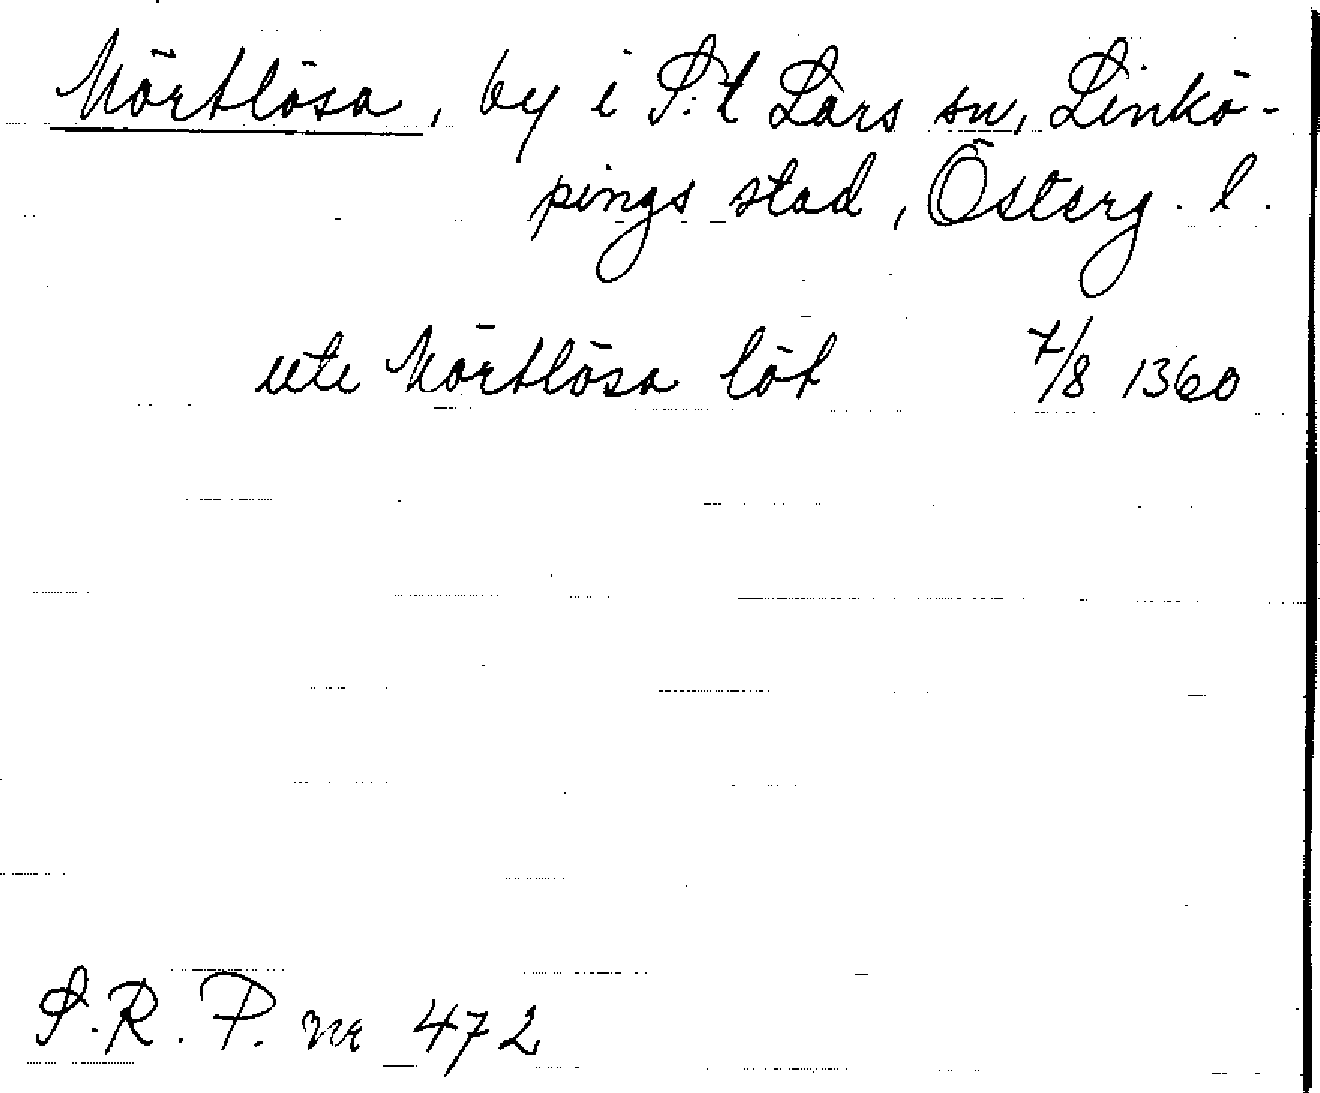 Mörtlösa, by i S:t Lars sn, Linkö-
pings stad, Österg. l.
ute Mörtlösa löt 7/8 1360
S.R.P. nr 472